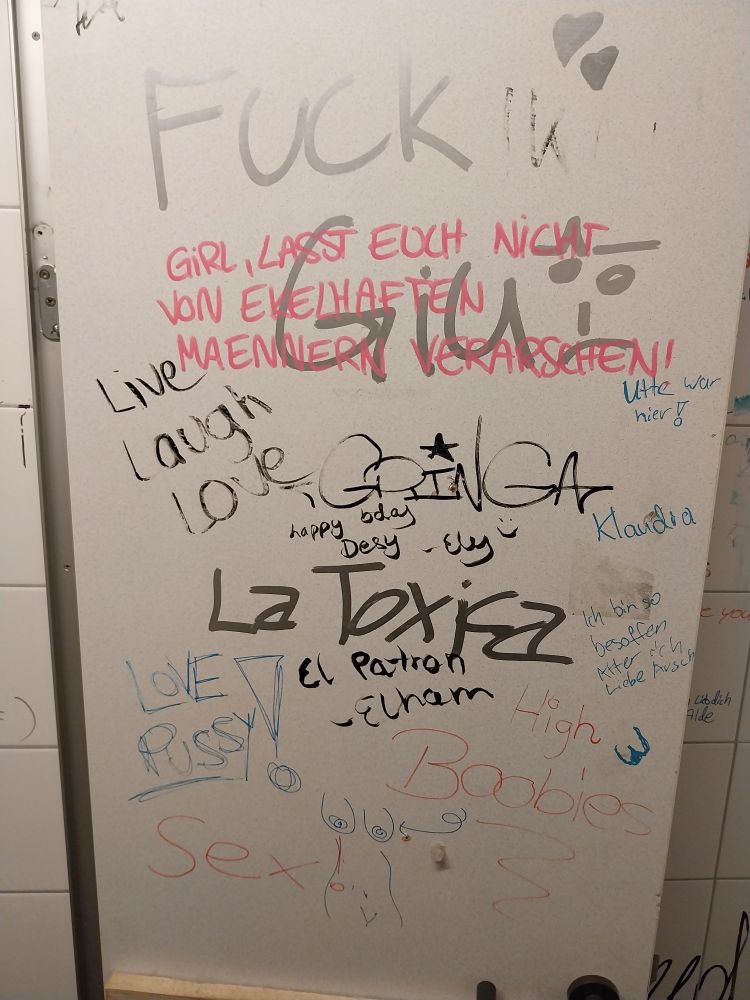 FUCK
Giu
GiRL, LASST EUCH NICHT
VON EKELHAFTEN
MAENNERN VERARSCHEN!
Live
Laugh
Love
Utte war
hier!
GRINGA
happy bday
Desy - Ely
Klaudia
La Toxica
Ich bin so
besoffen
Alter ich
liebe Arsch
El Patron
- Elham
LOVE
PUSSY!
High
Boobies
Sex